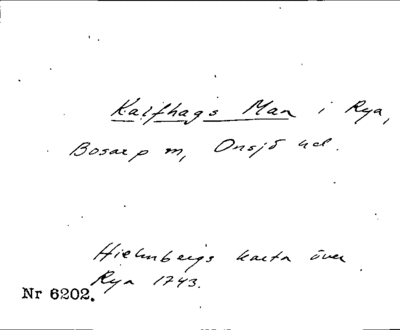 Kalfhags Maa i Rya,
Bosarp m, Onsjö hd.
Hielmbergs karta över
Rya 1743.
Nr 6202.